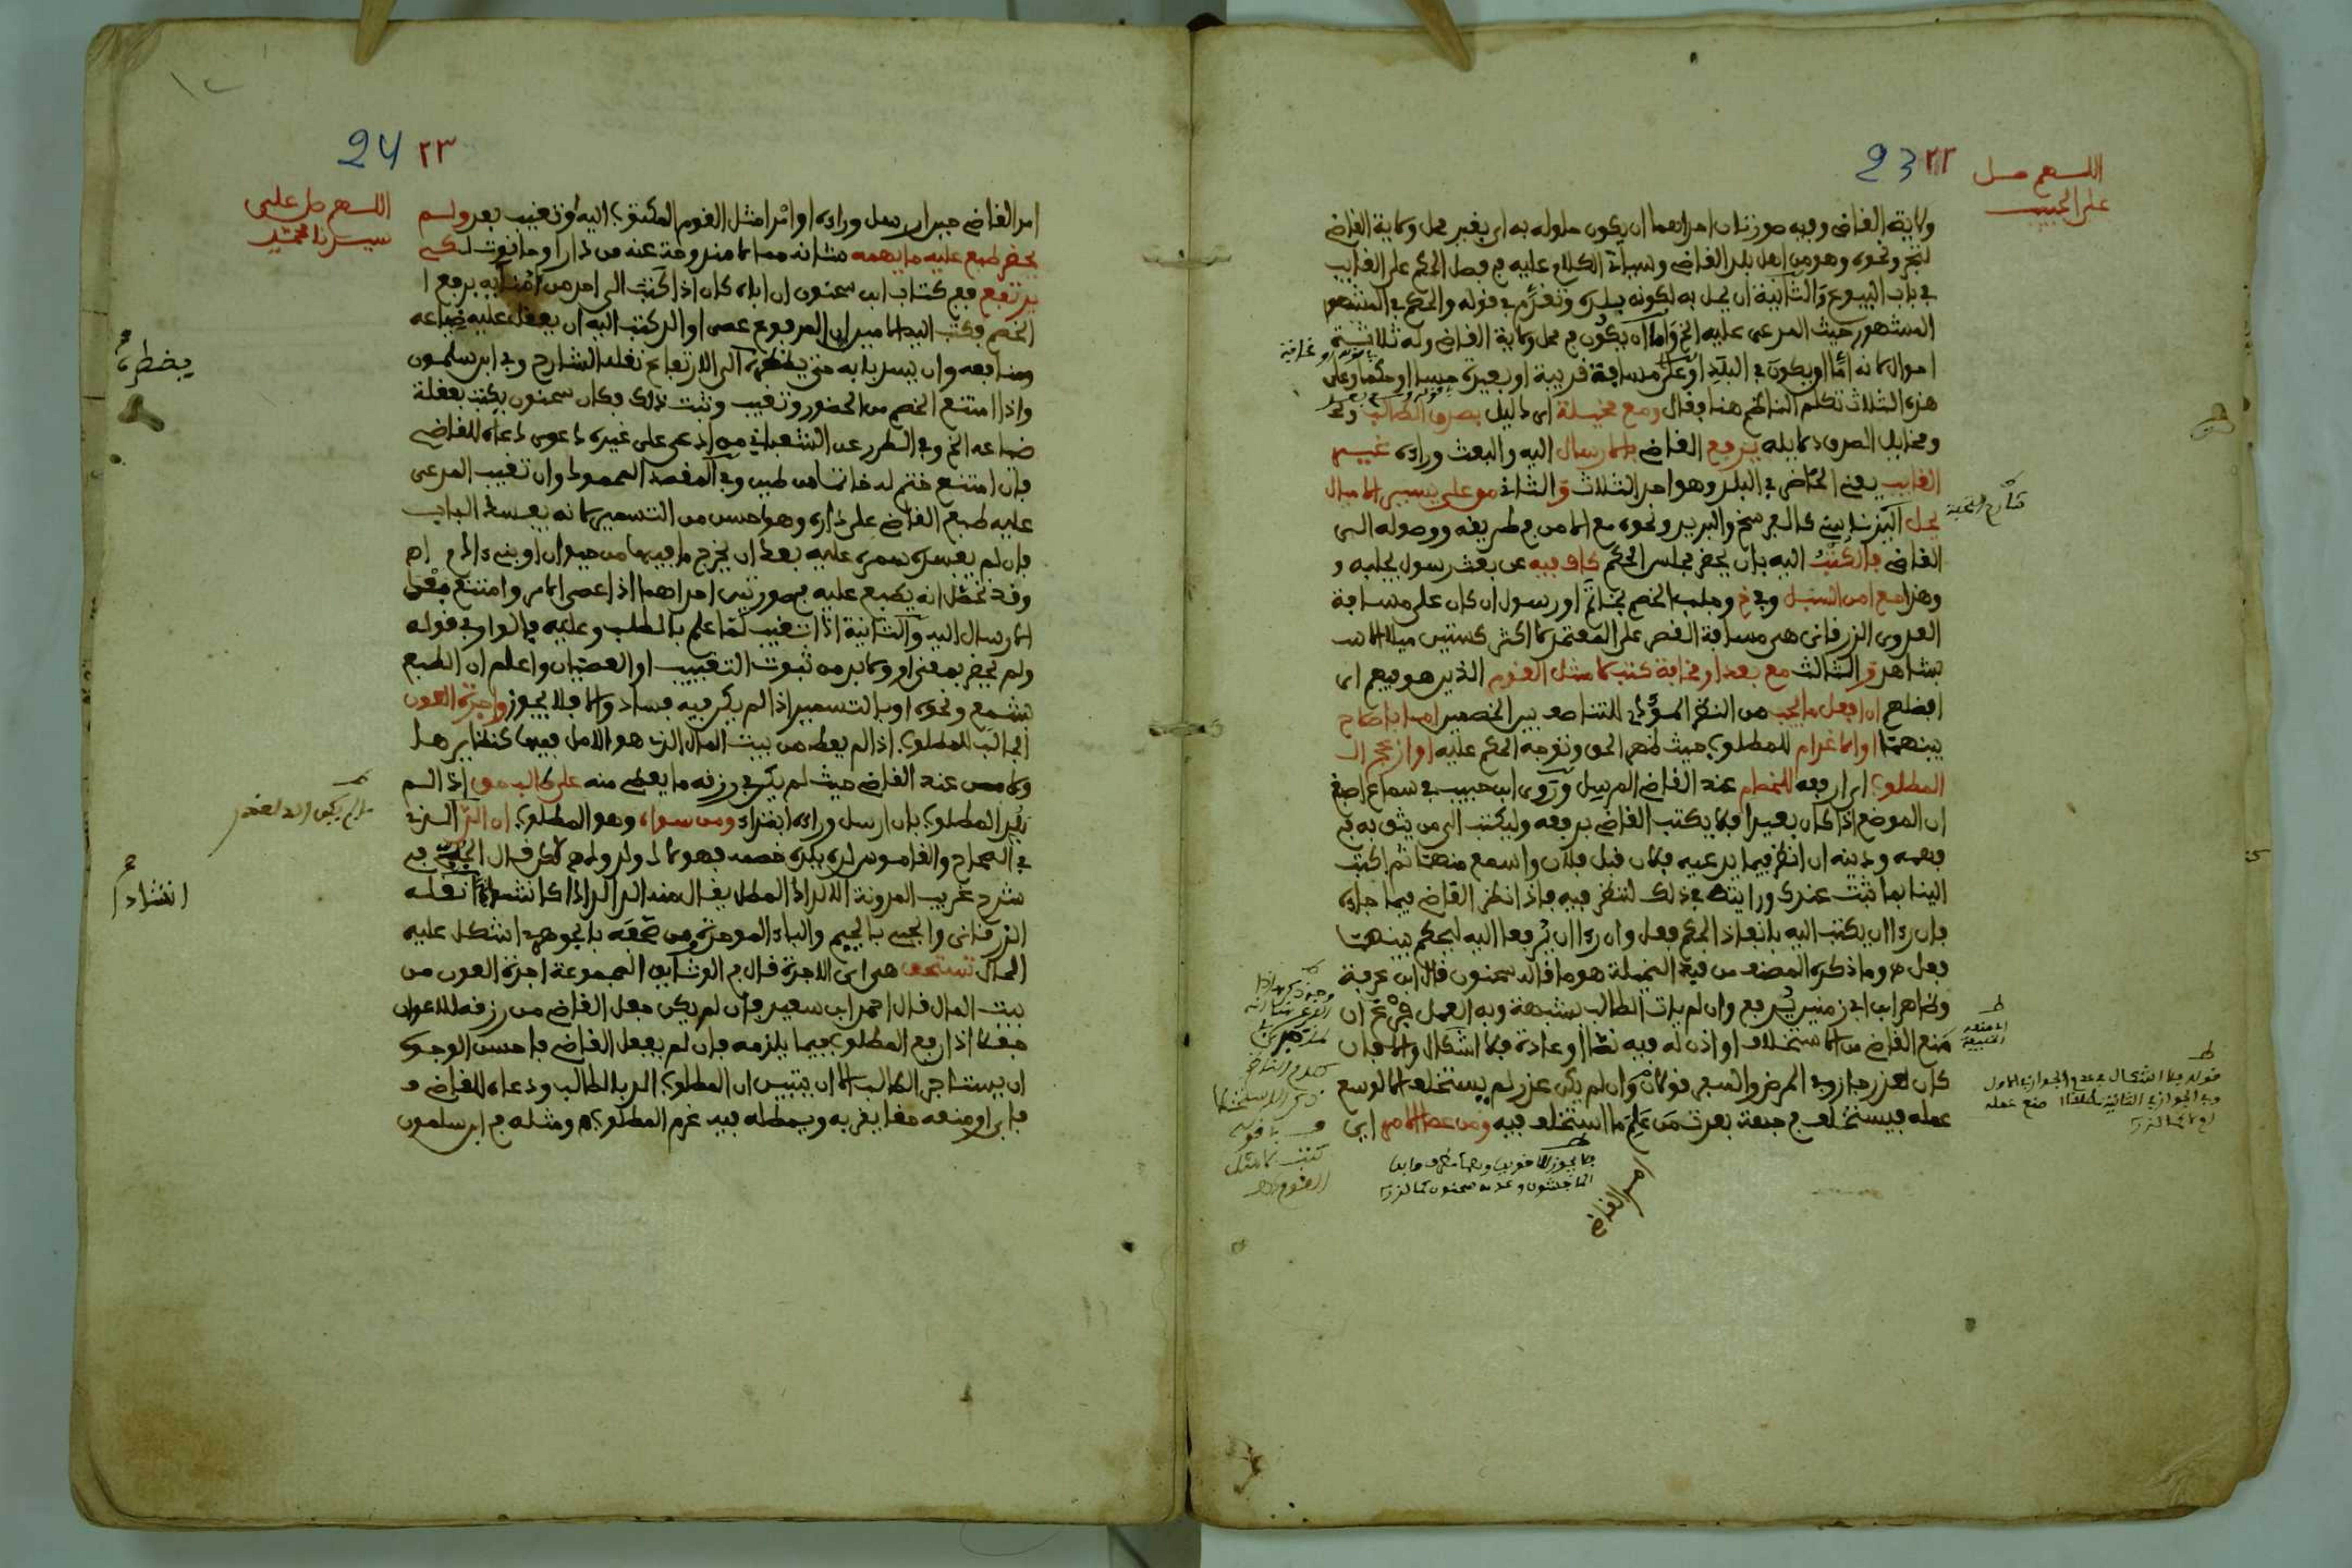 23 ٢٢
اللهم صل
على الحبيب
ولاية القاضي وفيه صورتان احداهما ان يكون حلوله به اي بغير محل ولاية القاضي
لتجر ونحوه وهو من اهل بلد القاضي وسيأتي الكلام عليه في فصل الحكم على الغائب
في باب البيوع والثانية ان يحل به لكونه بلده وتقدم في قوله والحكم في المشهور
المشهور حيث المدعى عليه الخ واما ان يكون في محل ولاية القاضي وله ثلاثة
احوال لانه اما ان يكون في البلد او على مسافة قريبة او بعيدة حسا او حكما وعلى
هذه الثلاث تكلم الناظم هنا فقال ومع مخيلة اي دليل بصدق الطالب
ومخايل الصدق دلايله يرفع القاضي بالارسال اليه والبعث وراءه
الغايب يعني الحاضر في البلد وهو احد الثلاث والثاني من على يسير الاميال
يحل اليزناسني كالفرسخ والبريد ونحوه مع الامن في طريقه ووصوله الى
القاضي فالكتب اليه بان يحضر مجلس الحكم كاف فيه عن بعث رسول يجلبه
وهذا مع امن السبل وفي خ وجلب الخصم بخاتم او رسول ان كان على مسافة
العدوى الزرقاني هي مسافة القصر على المعتمد لا اكثر كستين ميلا الا
بشاهد والثالث مع بعد او مخافة كتب لامثل القوم الذين هو فيهم اي
افضلهم ان افعل ما يجب من النظر المؤدي للتناصف بين الخصمين اما باصلاح
بينهما او الاغرام للمطلوب حيث ظهر الحق وتوجه الحكم عليه او ازعج ال
المطلوب اي ارفعه للخصام عند القاضي المرسل وروى ابن حبيب في سماع اصبغ
ان الموضع اذا كان بعيدا فلا يكتب القاضي برفعه وليكتب الى من يثق به في
فهمه ودينه ان انظر فيما يدعيه فلان قبل فلان واسمع منهما ثم اكتب
الينا بما ثبت عندك ورايته في ذلك لننظر فيه فاذا نظر القاضي فيما جاءه
فان رءا ان يكتب اليه بانفاذ الحكم فعل وان رءا ان يرفعا اليه ليحكم بينهما
فعل وما ذكره المصنف من قيد المخيلة هو ما قاله سحنون قال ابن عرفة
وظاهر ابن ابي زمنين يرفع وان لم يات الطالب بشبهة وبه العمل
منع القاضي من الاستخلاف او اذن له فيه نصا او عادة فلا اشكال والا فان
كان لعذر جاز وفي المرض والسفر قولان وان لم يكن عذر لم يستخلف الا لوسع
عمله فيستخلف في جهة بعدت من علم ما استخلف فيه ومن عصى الامر اي
امر القاضي
24 ٢٣
اللهم صل على
سيدنا محمد
امر القاضي حين ارسل وراءه او امر امثل القوم المكتوب اليه او تغيب بعد ولم
يحضر طبع عليه ما يهمه شانه مما لا مندوحة عنه من دار او حانوت لكي
يرتفع ففي كتاب ابن سحنون ان اباه كان اذا كتب الى احد من امنائه برفع ا
الخصم فكتب اليه الامين ان المرفوع عصى اوالي كتب اليه ان يعقل عليه ضياعه
ومنافعه وان يسد بابه حتى يضطره الى الارتفاع نقله الشارح وفي ابن سلمون
واذا امتنع الخصم من الحضور وتغيب وثبت ذلك فكان سحنون يكتب بعقلة
ضياعه الخ وفي الطرر عن الشعباني من ادعى على غيره دعوى دعاه للقاضي
فان امتنع ختم له خاتما من طين وفي المقصد المحمود وان تغيب المدعى
عليه طبع القاضي على داره وهو احسن من التسمير لانه يفسد الباب
فان لم يفسده سمره عليه بعد ان يخرج ما فيها من حيوان او بني ءادم اهـ
وقد تحصل انه يطبع عليه في صورتين احداهما اذا عصى الامر وامتنع بعد
الارسال اليه والثانية اذا تغيب لما علم بالطلب وعليه فالواو في قوله
ولم يحضر بمعنى او ولا بد من ثبوت التغيب او العصيان واعلم ان الطبع
بشمع ونحوه او بالتسمير اذا لم يكن فيه فساد والا فلا يجوز واجرة العون
الجالب للمطلوب اذا لم يعط من بيت المال الذي هو الاصل فيها كنظايرها
ولا من عند القاضي حيث لم يكن في رزقه ما يعطي منه على طالب حق اذا لم
يلد المطلوب بان ارسل وراءه ومن سواه وهو المطلوب ان الد الذي
في الصحاح والقاموس لده يلده خصمه فهو لاد ولدود لكن قال الجبي في
شرح غريب المدونة الالداد المطل يقال منه الد الدادا كانشادا نقله
الزرقاني والجبي بالجيم والباء الموحدة ومن صحفه بالجوهري اشكل عليه
الحال تستحق هي اي الاجرة قال في الوثايق المجموعة اجرة العون من
بيت المال قال احمد ابن سعيد فان لم يكن جعل القاضي من رزقه للاعوان
جعلا اذا رفع المطلوب فيما يلزمه فان لم يفعل القاضي فاحسن الوجوه
ان يستاجر الطالب الا ان يتبين ان المطلوب الد بالطالب ودعاه للقاضي
فابى او منعه حقا يقر به ويمطله فيه غرم المطلوب ومثله في ابن سلمون
يضطره
انشادا